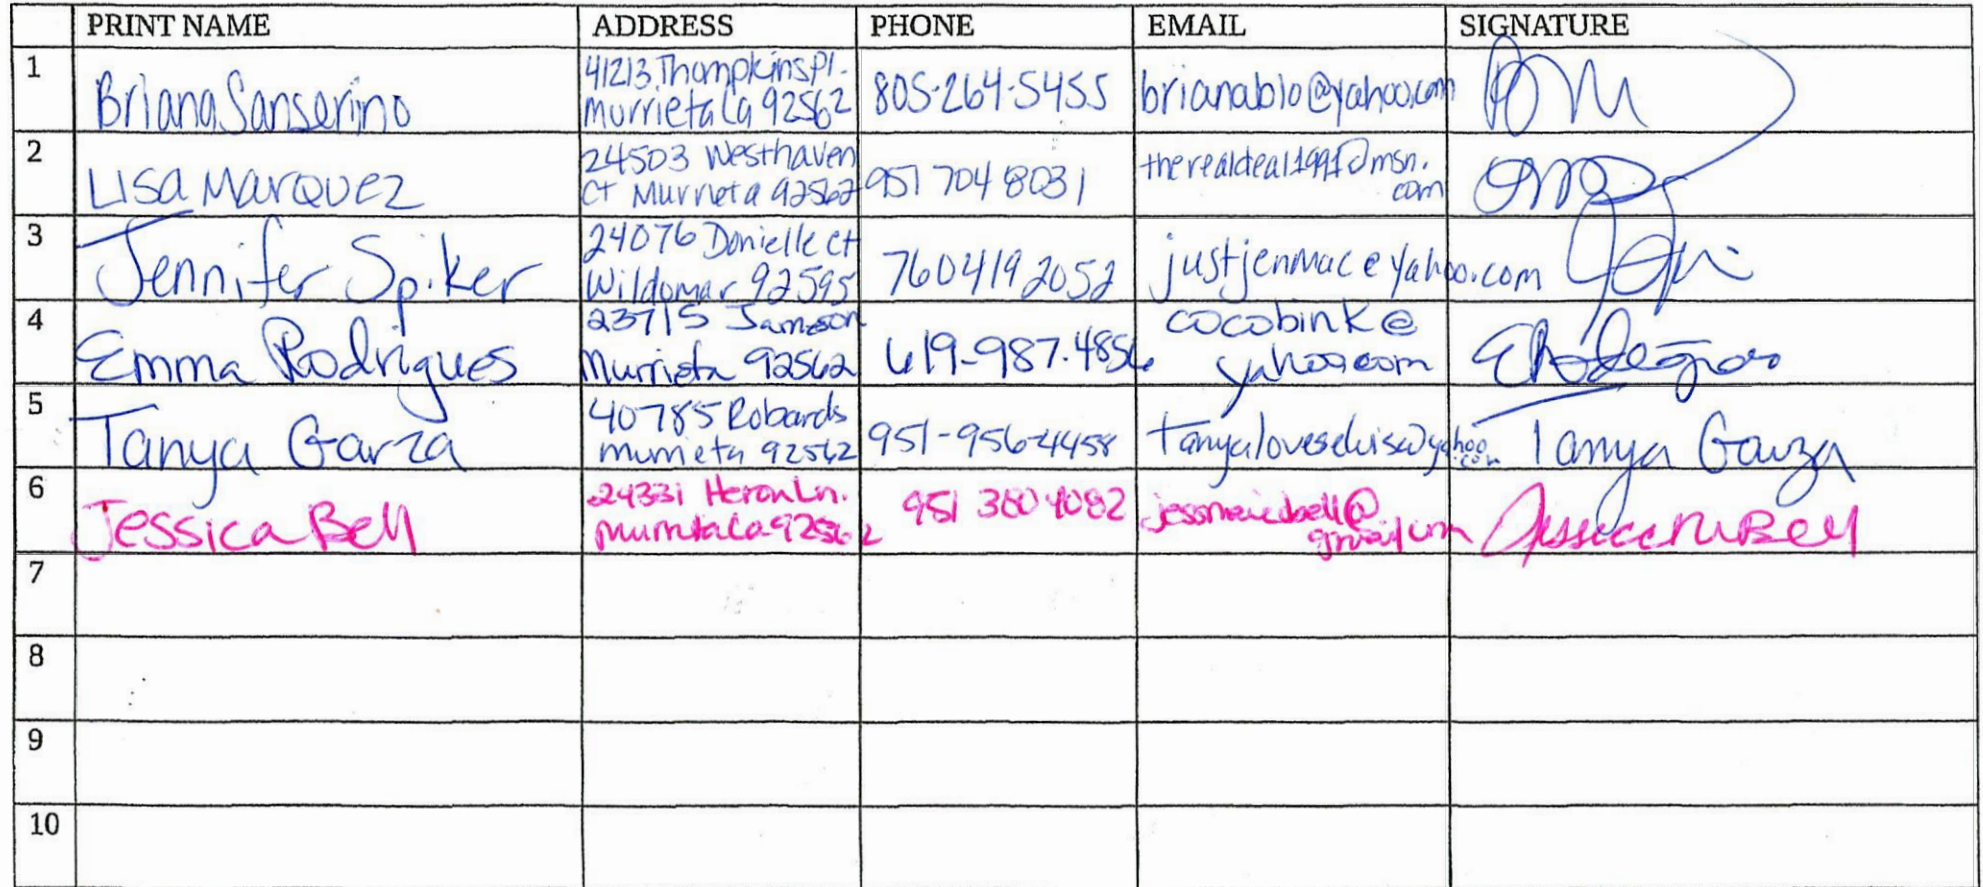 PRINT NAME ADDRESS PHONE EMAIL SIGNATURE
1 Briana Sanserino 41213 Thompkins Pl. Murrieta Ca 92562 805-264-5455 brianablo@yahoo.com
2 Lisa Marquez 24503 Westhaven Ct Murrieta 92562 951 704 8031 therealdeal1991@msn.com
3 Jennifer Spiker 24076 Donielle Ct Wildomar 92595 760 419 2052 justjenmac@yahoo.com Jen
4 Emma Rodrigues 23715 Jameson Murrieta 92562 619-987-4856 cocobink@yahoo.com ERodrigues
5 Tanya Garza 40785 Robards Murrieta 92562 951-956-4458 Tanya Garza
6 Jessica Bell 24331 Heron Ln. Murrieta Ca 92562 951 380 4082 Jessica M Bell
7
8
9
10